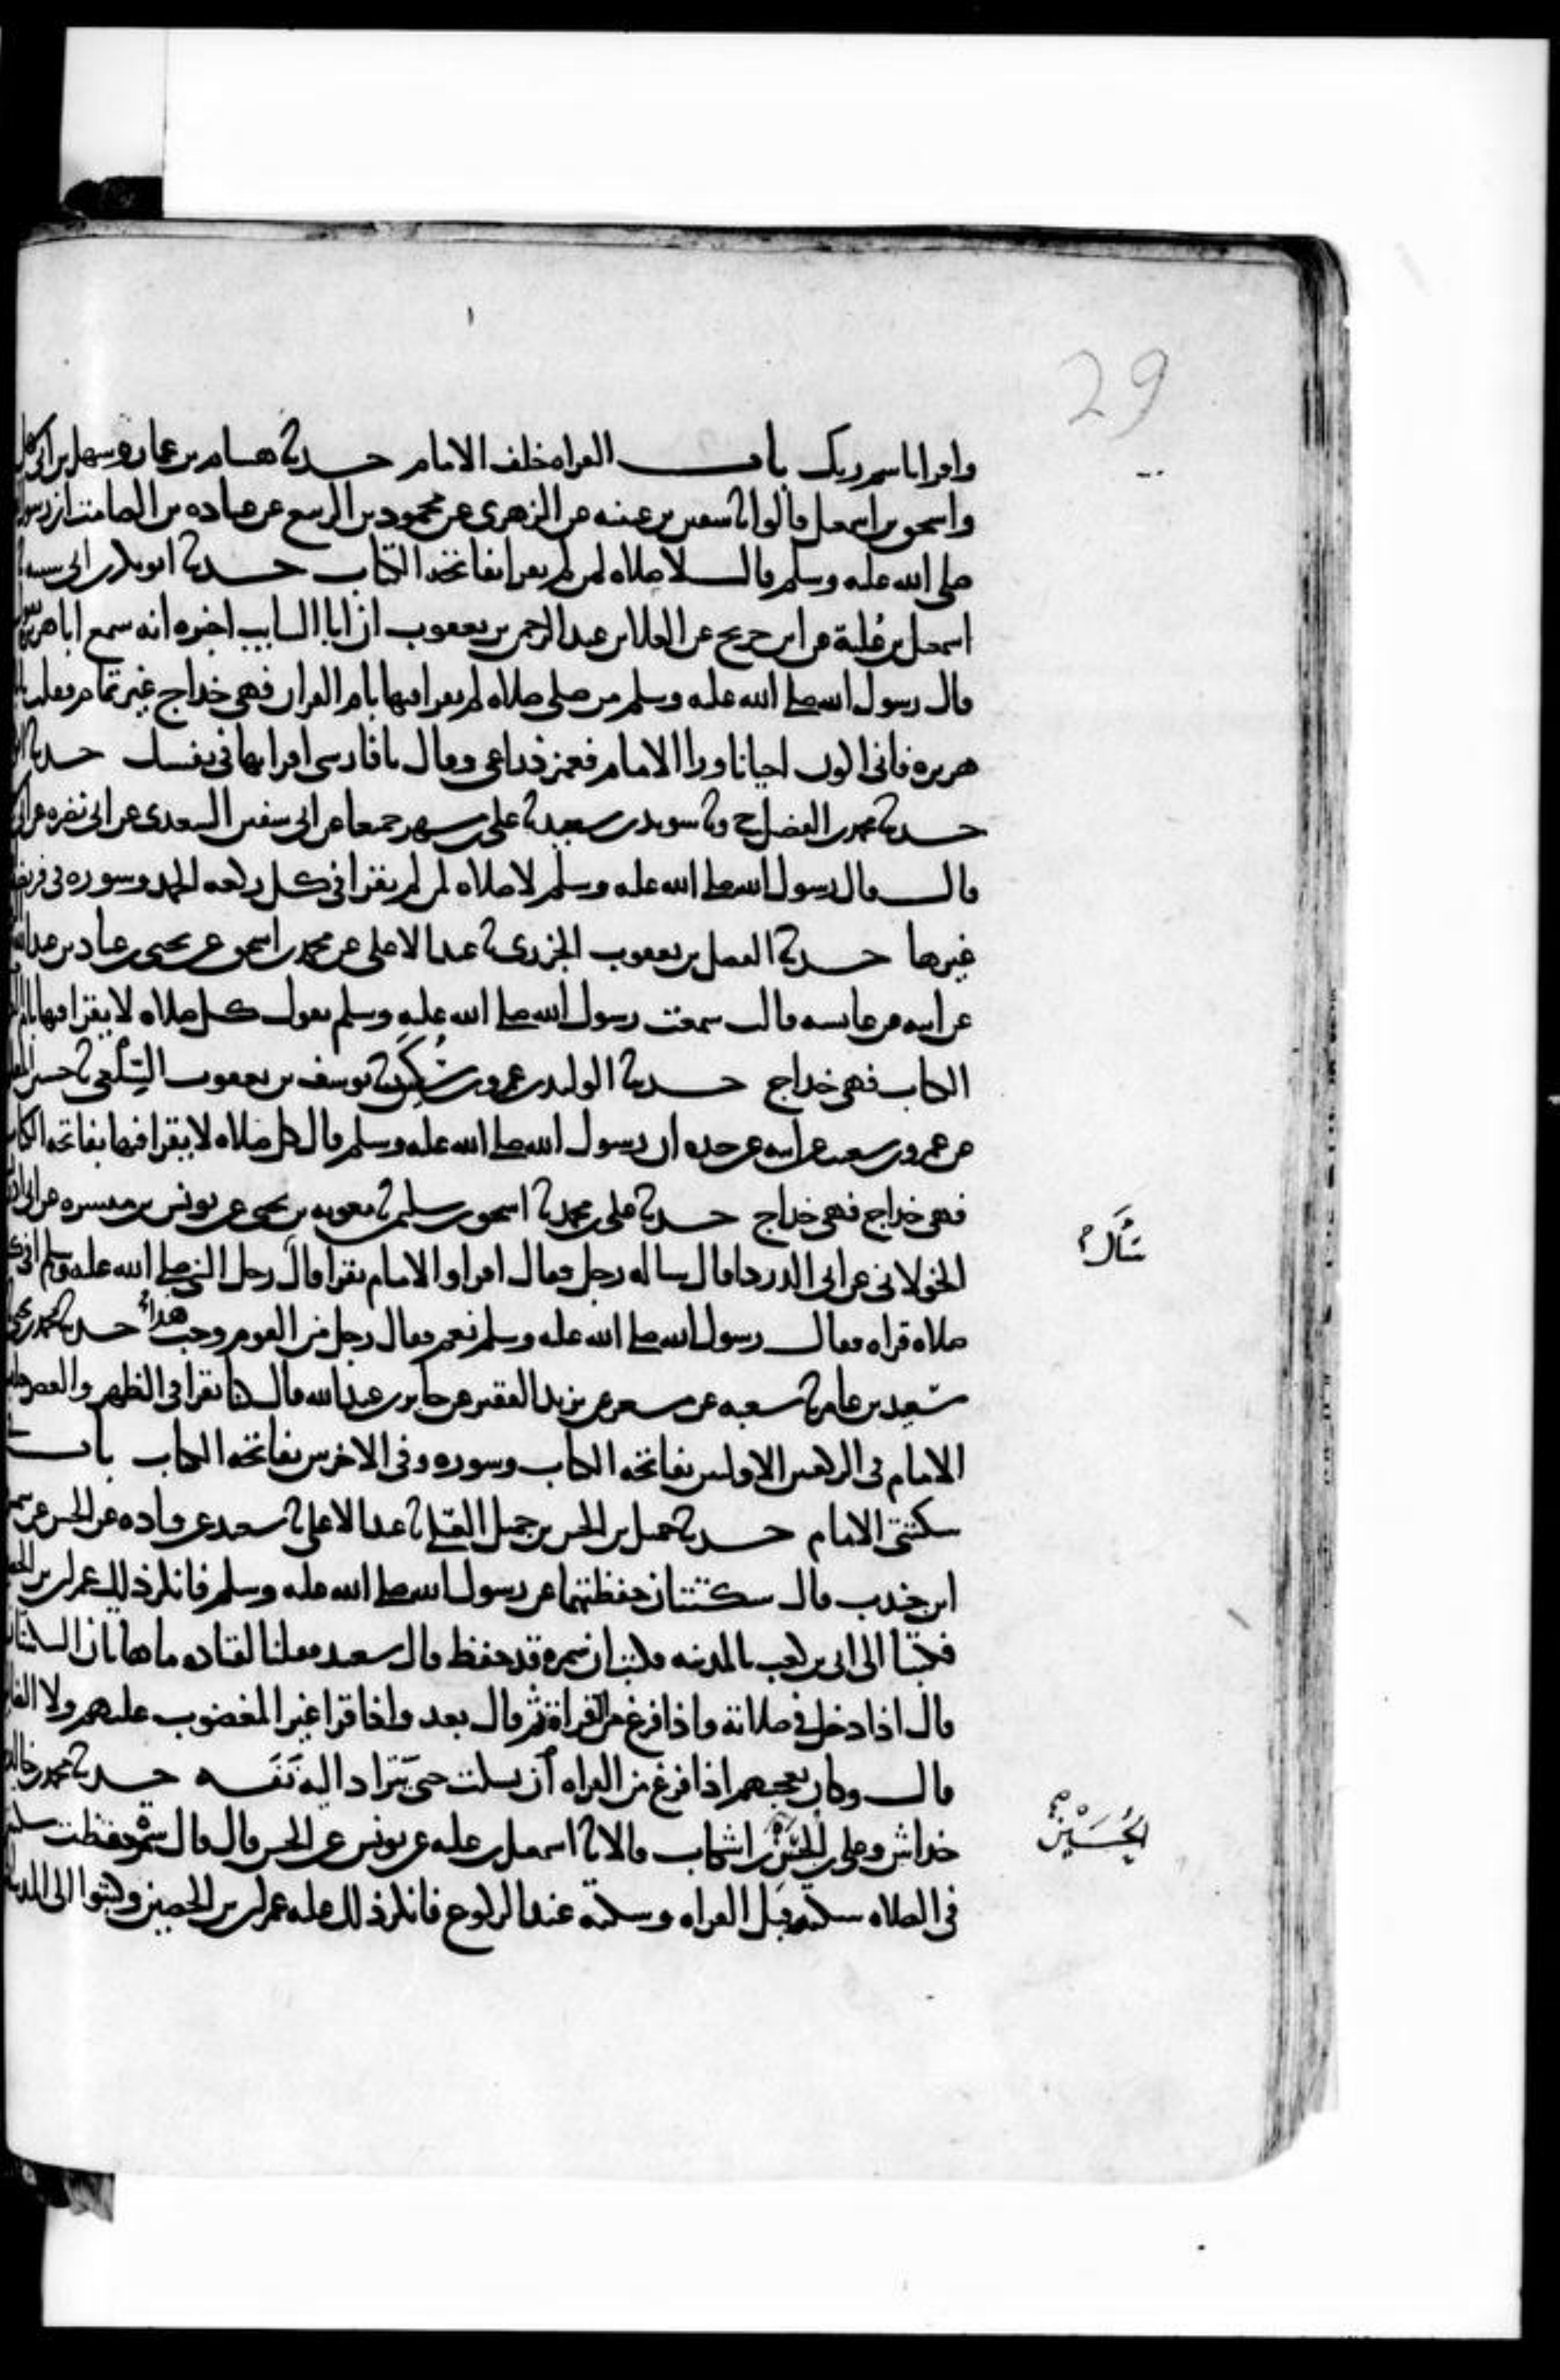 29
واقرا باسم ربك باب القراه خلف الامام حدثنا هشام بن عمار وسهل بن ابي سهل
واسحق بن اسمعيل قالوا ثنا سفين بن عيينه عن الزهري عن محمود بن الربيع عن عباده بن الصامت ان رسول
صلى الله عليه وسلم قال لا صلاه لمن لم يقرا بفاتحة الكتاب حدثنا ابو بكر بن ابي شيبه
اسمعيل بن عُلية عن ابن جريج عن العلا بن عبد الرحمن بن يعقوب ان ابا السايب اخبره انه سمع ابا هريره يقول
قال رسول الله صلى الله عليه وسلم من صلى صلاه لم يقرا فيها بام القران فهي خداج غير تمام فقلت يابا
هريره فاني اكون احيانا ورا الامام فغمز ذراعي وقال يا فارسي اقرا بها في نفسك حدثنا ابو
حدثنا محمد بن الفضيل ح وثنا سويد بن سعيد ثنا علي بن مسهر جميعا عن ابي سفين السعدي عن ابي نضره عن ابي
قال قال رسول الله صلى الله عليه وسلم لا صلاه لمن لم يقرا في كل ركعه الحمد وسوره في فريضه
غيرها حدثنا الفضل بن يعقوب الجزري ثنا عبد الاعلى عن محمد بن اسحق عن يحيى بن عباد بن عبد الله
عن ابيه عن عايشه قالت سمعت رسول الله صلى الله عليه وسلم يقول كل صلاه لا يقرا فيها بام
الكتاب فهي خداج حدثنا الوليد بن عمرو بن سُكَين ثنا يوسف بن يعقوب السَّلعي ثنا حسين المعلم
عن عمرو بن شعيب عن ابيه عن جده ان رسول الله صلى الله عليه وسلم قال كل صلاه لا يقرا فيها بفاتحه الكتاب
فهي خداج فهي خداج حدثنا علي بن محمد ثنا اسحق بن سليمن ثنا معويه بن يحيى عن يونس بن ميسره عن ابي ادريس
الخولاني عن ابي الدردا قال ساله رجل فقال اقرا والامام يقرا قال رجل النبي صلى الله عليه وسلم افي كل
سَأَلَ
صلاه قراه فقال رسول الله صلى الله عليه وسلم نعم فقال رجل من القوم وجب هذا حدثنا محمد بن يحيى
سَعيد بن عامر ثنا شعبه عن مسعر عن يزيد الفقير عن جابر بن عبد الله قال كنا نقرا في الظهر والعصر خلف
الامام في الركعتين الاوليين بفاتحه الكتاب وسوره وفي الاخريين بفاتحه الكتاب باب
سكتتي الامام حدثنا جميل بن الحسن بن جميل العتكي ثنا عبد الاعلى ثنا سعيد عن قتاده عن الحسن عن سمره
ابن جندب قال سكتتان حفظتهما عن رسول الله صلى الله عليه وسلم فانكر ذلك عمران بن الحصين
فكتبنا الى ابي بن كعب بالمدينه فكتب ان سمره قد حفظ قال سعيد فقلنا لقتاده ما هاتان السكتتان
قال اذا دخل في صلاته واذا فرغ من القراة ثم قال بعد واذا قرا غير المغضوب عليهم ولا الضالين
قال وكان يعجبهم اذا فرغ من القراه ان يسكت حتى يَترَاد اليه نَفَسه حدثنا محمد بن خالد
خداش وعلي بن الحسين بن اشكاب قالا ثنا اسمعيل بن عليه عن يونس عن الحسن قال قال سمره حفظت سكتتين
الحُسَيْن
في الصلاه سكته قبل القراه وسكته عند الركوع فانكر ذلك عليه عمران بن الحصين وكتبوا الى المدينه